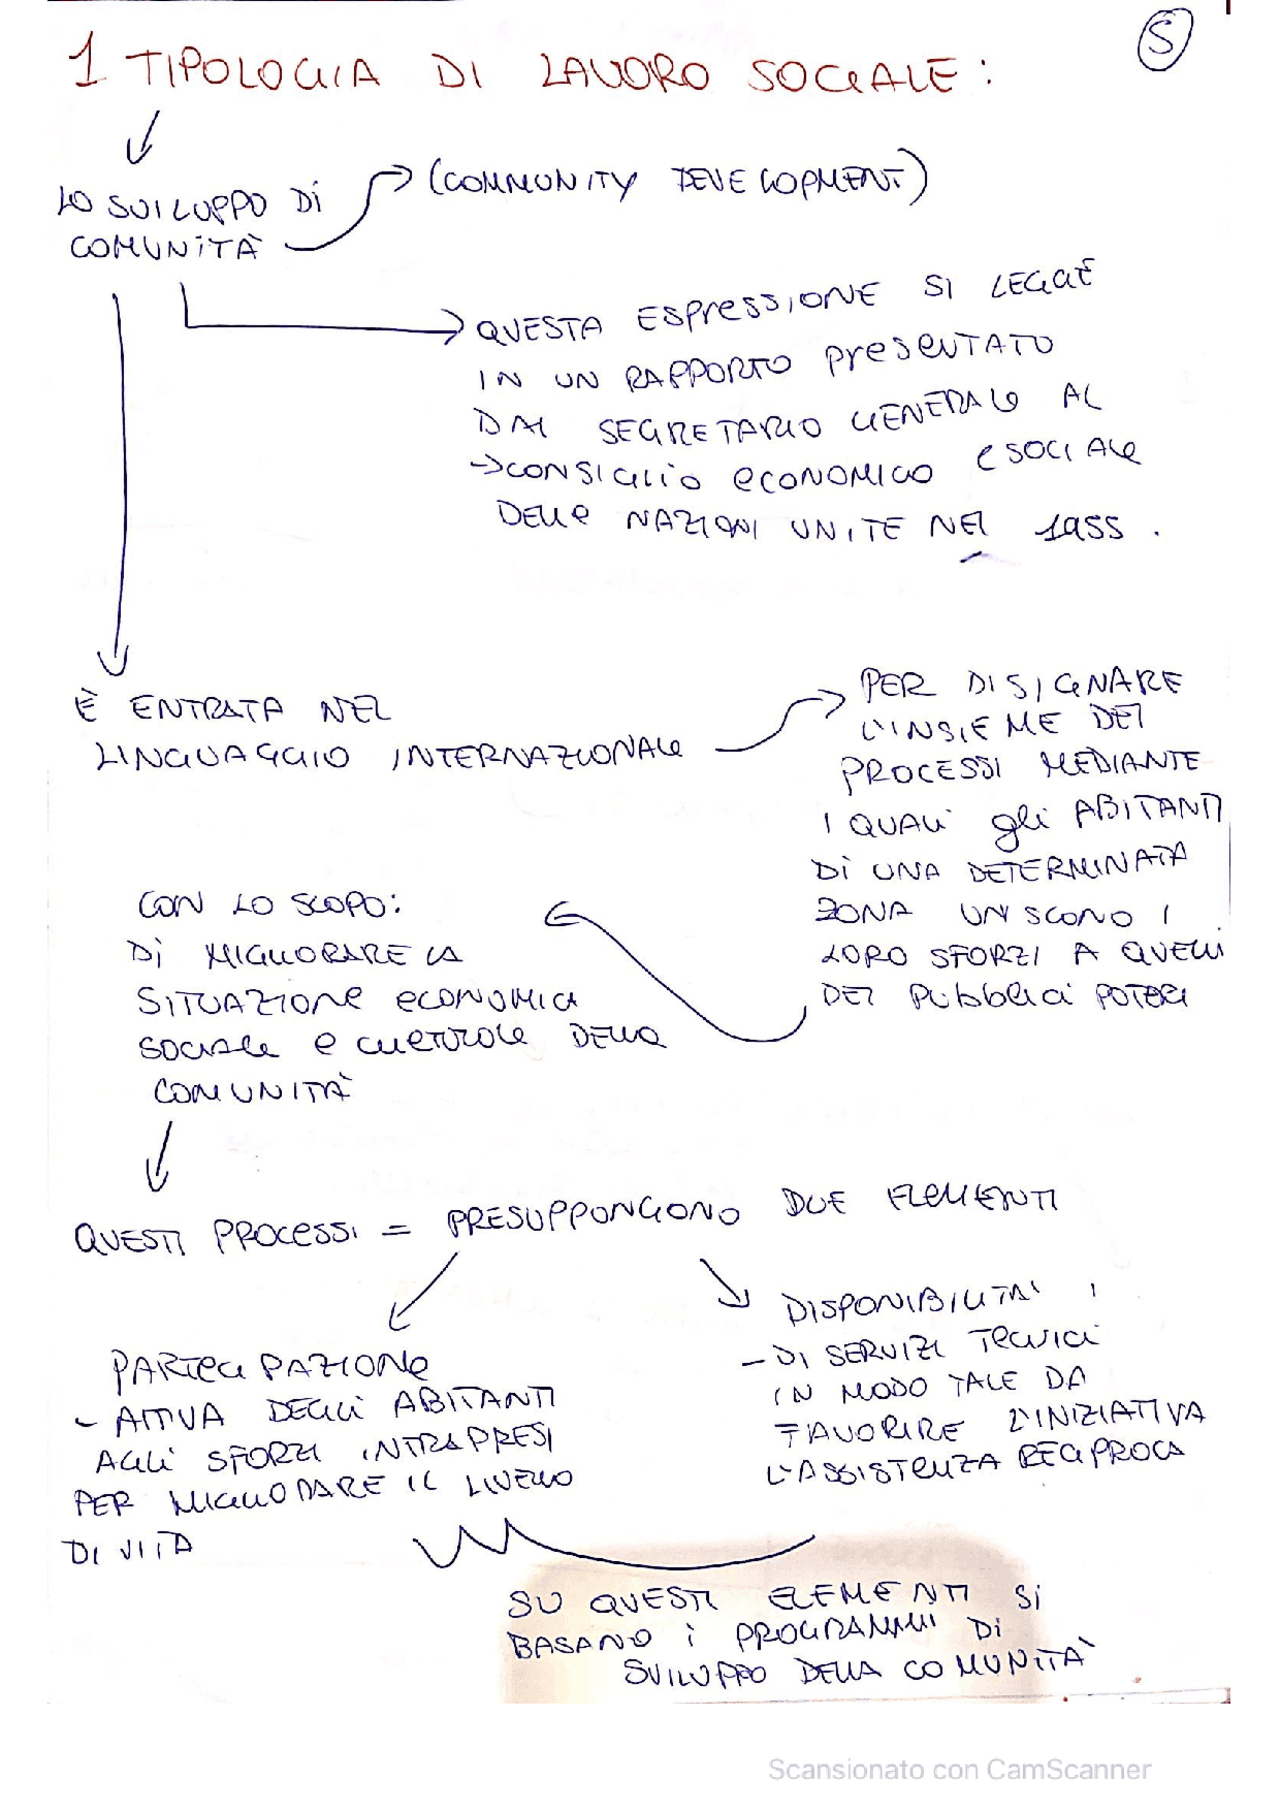 5
1 TIPOLOGIA DI LAVORO SOCIALE:
LO SVILUPPO DI
COMUNITÀ
(COMMUNITY DEVELOPMENT)
QUESTA ESPRESSIONE SI LEGGE
IN UN RAPPORTO PRESENTATO
DAL SEGRETARIO GENERALE AL
→ CONSIGLIO ECONOMICO E SOCIALE
DELLE NAZIONI UNITE NEL 1955.
È ENTRATA NEL
LINGUAGGIO INTERNAZIONALE
PER DISIGNARE
L'INSIEME DEI
PROCESSI MEDIANTE
I QUALI gli ABITANTI
DI UNA DETERMINATA
ZONA UNISCONO I
LORO SFORZI A QUELLI
DEI PUBBLICI POTERI
CON LO SCOPO:
DI MIGLIORARE LA
SITUAZIONE ECONOMICA
SOCIALE E CULTURALE DELLA
COMUNITÀ
QUESTI PROCESSI = PRESUPPONGONO DUE ELEMENTI
PARTECIPAZIONE
- ATTIVA DEGLI ABITANTI
AGLI SFORZI INTRAPRESI
PER MIGLIORARE IL LIVELLO
DI VITA
DISPONIBILITA'
- DI SERVIZI TECNICI
IN MODO TALE DA
FAVORIRE L'INIZIATIVA
L'ASSISTENZA RECIPROCA
SU QUESTI ELEMENTI SI
BASANO I PROGRAMMI DI
SVILUPPO DELLA COMUNITÀ
Scansionato con CamScanner